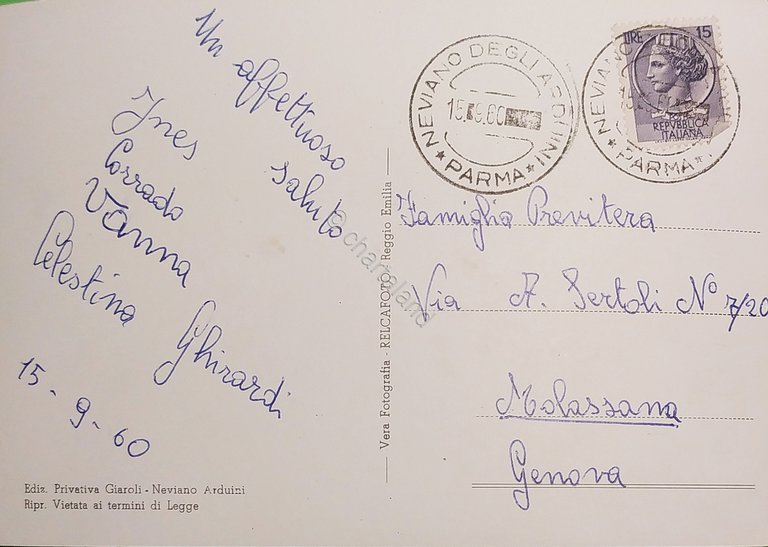 Un affettuoso
saluto
Ines
Corrado
Vanna
Celestina Ghirardi
15-9-60
Ediz. Privativa Giaroli - Neviano Arduini
Ripr. Vietata ai termini di Legge
Vera Fotografia - RELCAFOTO - Reggio Emilia
NEVIANO DEGLI ARDUINI
15.9.60
*PARMA*
LIRE 15
REPVBBLICA
ITALIANA
NEVIANO
*PARMA*
Famiglia Previtera
Via A. Sertoli N° 7/20
Molassana
Genova
© chartaland